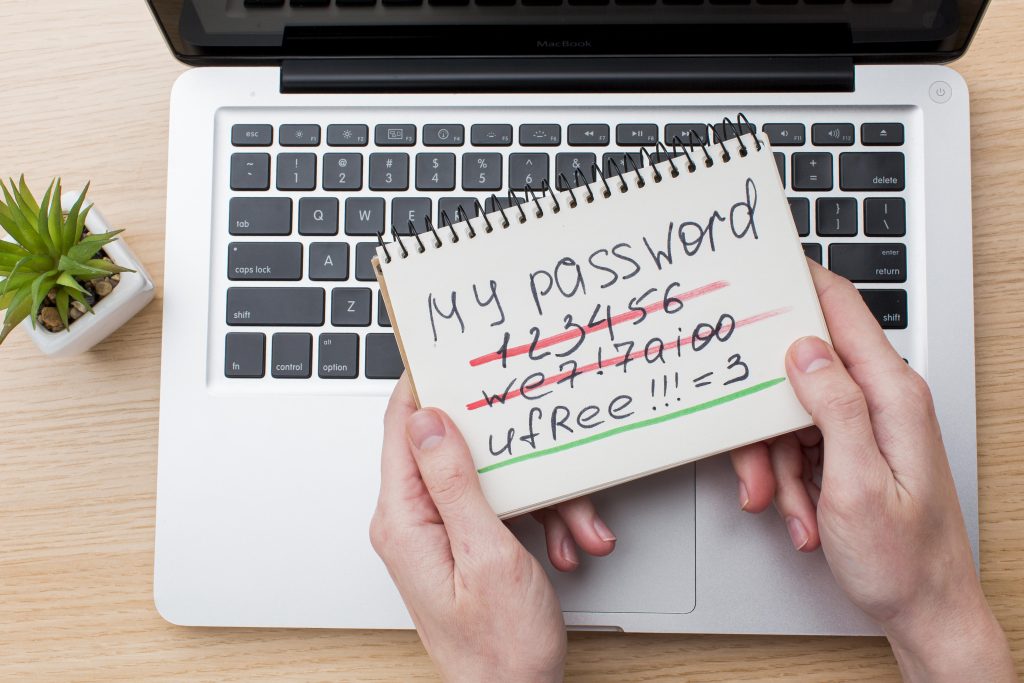 MacBook
esc F1 F2 F3 F4 F5 F6 F7 F8 F11 F12
~ ! 1 @ 2 # 3 $ 4 % 5 ^ 6 & + = delete
tab Q W E R } ] | \
caps lock A enter return
shift Z shift
fn control alt option
My password
123456
we7!7aioo
ufree!!!=3